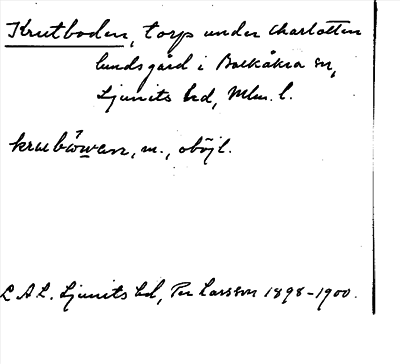 Krutboden, torp under Charlotten
lundsgård i Balkåkra sn,
Ljunits hd, Mlm. l.
m., oböjl.
L.A.L. Ljunits hd, Per Larsson 1898-1900.